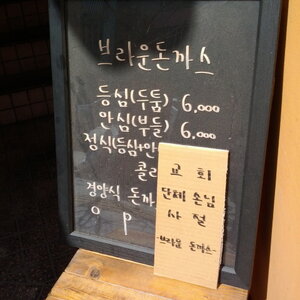 브라운돈까스
등심(두툼) 6,000
안심(부들) 6,000
정식(등심+안
콜라
경양식 돈까
o p
교회
단체 손님
사절
-브라운 돈까스-